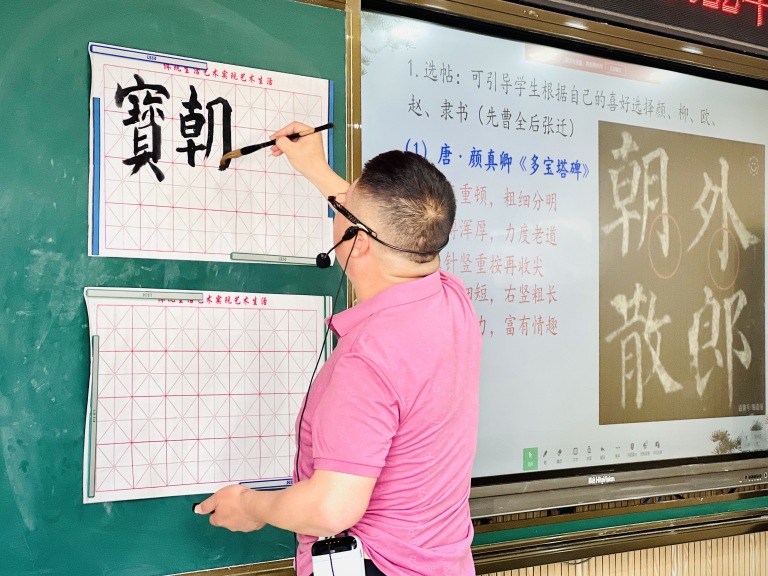 传统生活艺术实现艺术生活
寶朝
艺术实现艺术生活
1.选帖：可引导学生根据自己的喜好选择颜、柳、欧、
赵、隶书（先曹全后张迁）
（1）唐·颜真卿《多宝塔碑》
重顿，粗细分明
浑厚，力度老道
针竖重按再收尖
短，右竖粗长
力，富有情趣
朝外
散郎